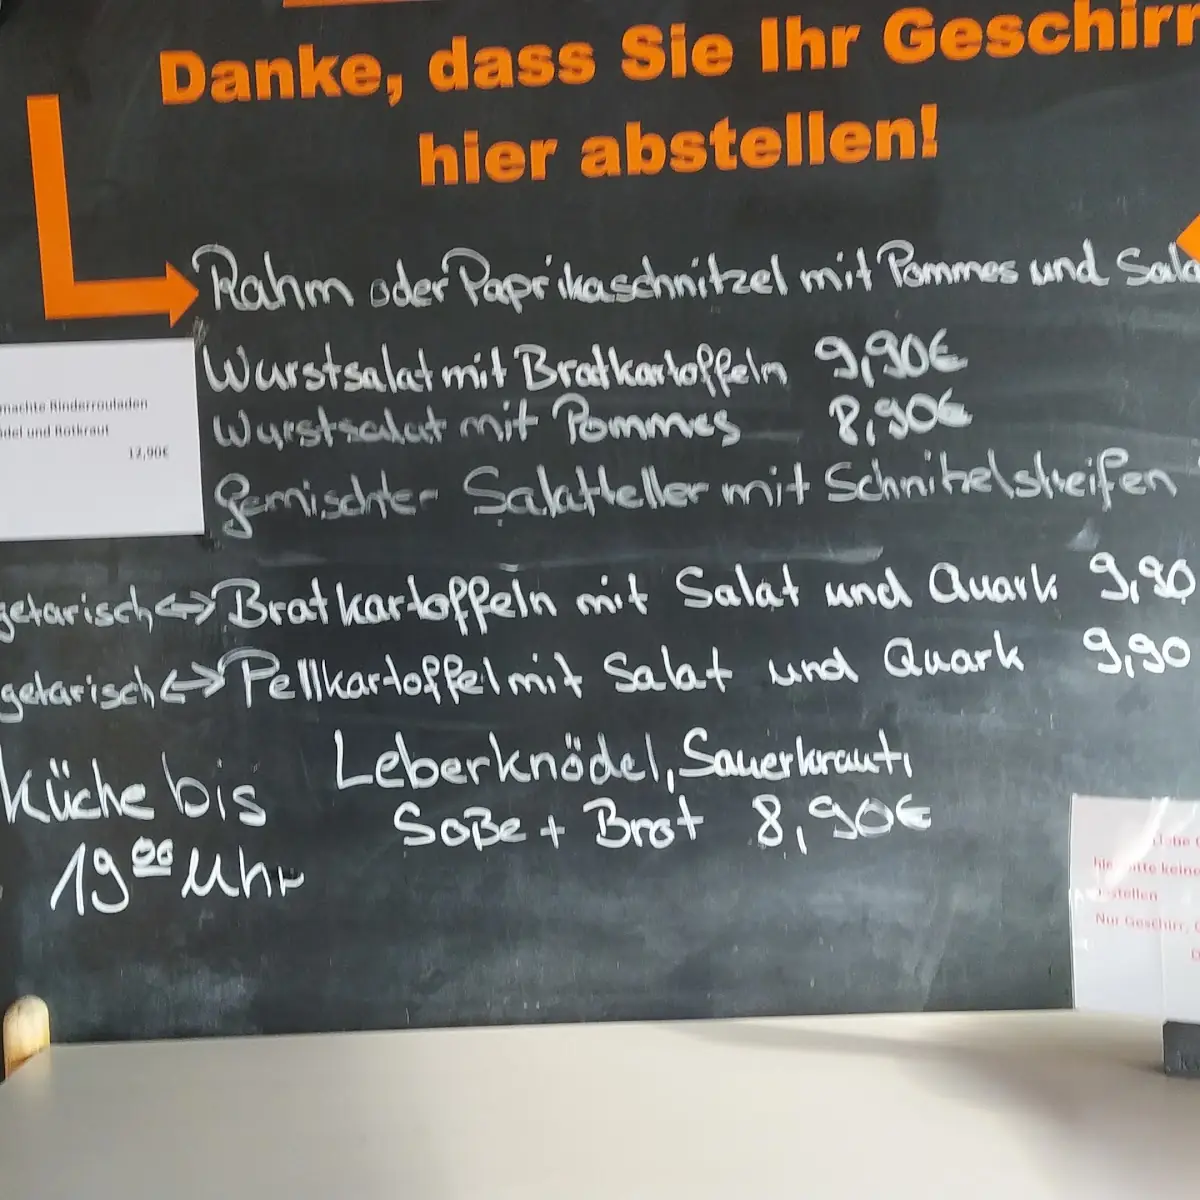 Danke, dass Sie Ihr Geschirr
hier abstellen!
Rahm oder Paprikaschnitzel mit Pommes und Sala
Wurstsalat mit Bratkartoffeln 9,90€
Wurstsalat mit Pommes 8,90€
machte Rinderrouladen
del und Rotkraut
12,90€
gemischter Salatteller mit Schnitzelstreifen
getarisch ↔ Bratkartoffeln mit Salat und Quark 9,90
getarisch ↔ Pellkartoffel mit Salat und Quark 9,90
Küche bis
19 00 Uhr
Leberknödel, Sauerkraut,
Soße + Brot 8,90€
keine
stellen
Nur Geschirr,